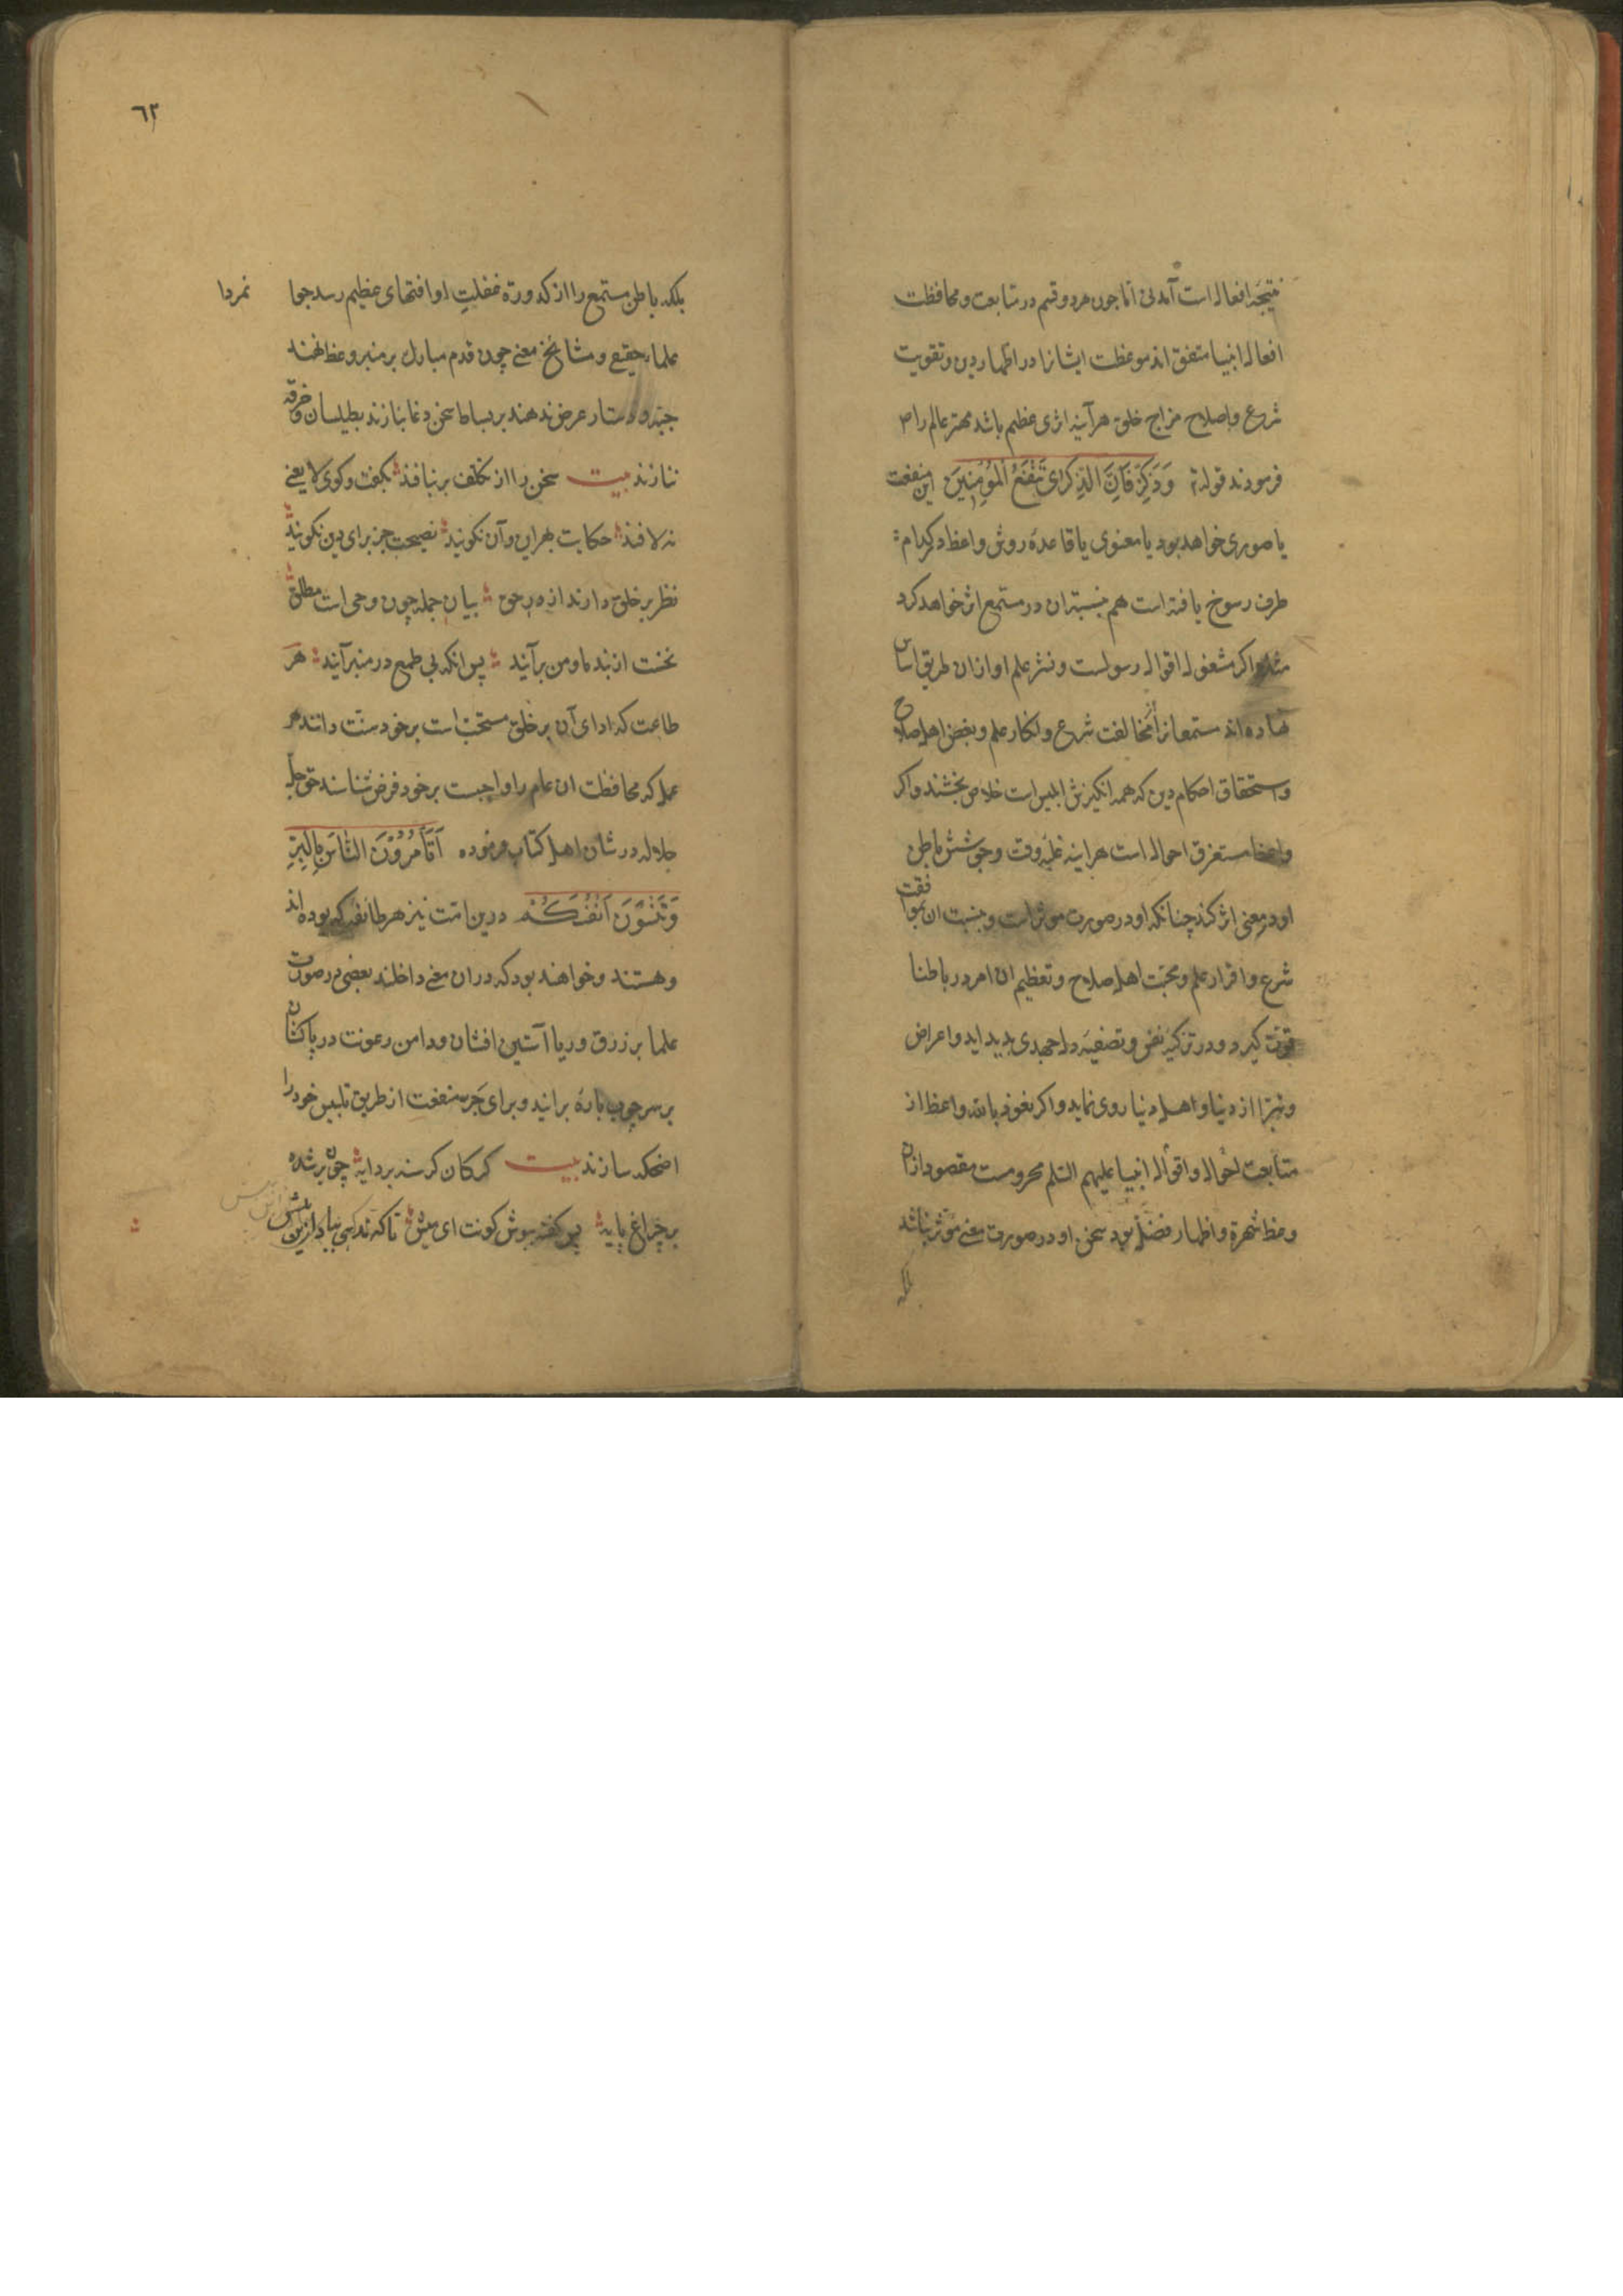 نتیجه افعال است آمدنی اما چون هر دو قسم در متابعت و محافظت
افعال انبیا متفق اند موعظت ایشانرا در اظهار دین و تقویت
شرع و اصلاح مزاج خلق هرآینه اثری عظیم باشد مهتر عالم را
فرمودند قوله وَذَكِّرْ فَاِنَّ الذِّكْرٰى تَنْفَعُ الْمُؤْمِنِينَ این منفعت
یا صوری خواهد بود یا معنوی یا قاعده روش واعظ در کدام
طرف رسوخ یافته است هم بنسبت ان در مستمع اثر خواهد کرد
مثلا اگر مشغول اقوال رسولست و نشر علم او ازان طریق اساس
نهاده اند مستمعانرا از مخالفت شرع و انکار علم و بغض اهل صلاح
و استحقاق احکام دین که همه انکیزش ابلیس است خلاص بخشند و اکر
واعظ مستغرق احوال است هراینه غلبه وقت و جوشش باطن
او در معنی اثر کند چنانکه او در صورت موثر است و بنسبت ان بموافقت
شرع و اقرار علم و محبت اهل صلاح و تعظیم ان امر در باطنها
قوت کیرد و در تزکیه نفس و تصفیه دل جهدی بدید اید و اعراض
و تبرا از دنیا و اهل دنیا روی نماید و اکر نعوذ بالله واعظ از
متابعت احوال و اقوال انبیا علیهم السلم محرومست مقصود ازان
وعظ شهرة و اظهار فضل بود سخن او در صورت معنی موثر نباشد
بلکه
٦٢
بلکه باطن مستمع را از کدورة غفلت او افتهای عظیم رسد جوا نمردا
علماء حقیقی و مشایخ معنی چون قدم مبارک بر منبر وعظ نهند
جبه و دستار عرض ندهند بر بساط سخن دغا نبازند بطیلسان و خرقه
ننازند بیت سخن را از تکلف بر نبافند بکفت و کوی لا یعنی
نه لافند حکایت بهر این و آن نکویند نصیحت جز برای دین نکویند
نظر بر خلق دارند از در حق بیان جمله چون وحی است مطلق
نخست از بند ما و من برآیند پس انکه بی طمع در منبر آیند هر
طاعت که ادای آن بر خلق مستحب است بر خود سنت دانند هر
عمل که محافظت ان عام را واجبست بر خود فرض شناسند حق جل
جلاله در شان اهل کتاب فرموده اَتَأْمُرُوْنَ النَّاسَ بِالْبِرِّ
وَتَنْسَوْنَ اَنْفُسَكُمْ درین امت نیز هر طائفه که بوده اند
و هستند و خواهند بود که دران معنی داخلند بعضی در صورت
علما بر زرق و ریا آستین افشان و دامن رعونت در پا کشان
بر سر چوب پاره برایند و برای جر منفعت از طریق تلبیس خود را
اضحکه سازند بیت کرکان کرسنه بر دایه چون بر شده
بر چراغ پایه پس کفته بیوش کونت ای میش تا که نکهی بباد ازین